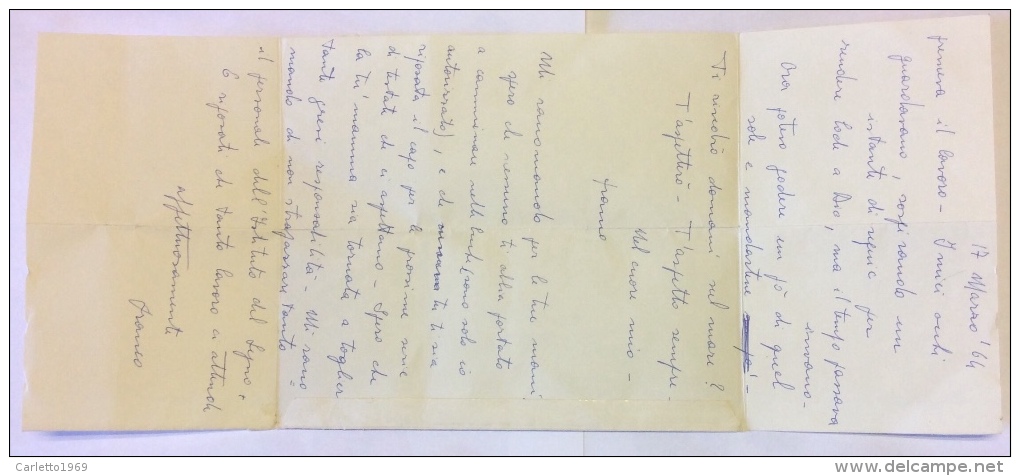 17 Marzo '64
premeva il lavoro - I miei occhi
guardavano, sospirando un
istante di requie per
rendere lode a Dio, ma il tempo passava
invano -
Ora potevo godere un pò di quel
sole e mandartene -
Ti rivedrò domani nel mare?
T'aspetterò - T'aspetto sempre -
Nel cuore mio -
Franco
Mi raccomando per le tue mani
spero che nessuno ti abbia portato
a camminare nelle (sono solo io
autorizzato), e che tu ti sia
riposata il capo per la prossima serie
di testate che ci aspettano - Spero che
la tu' mamma sia tornata a toglier
tante gravi responsabilità - Mi racco=
mando di non strapazzar tanto
il personale dell'Istituto del Legno.
E riposati che tanto lavoro ci attende
affettuosamente
Franco
Carletto1969
delcampe.net